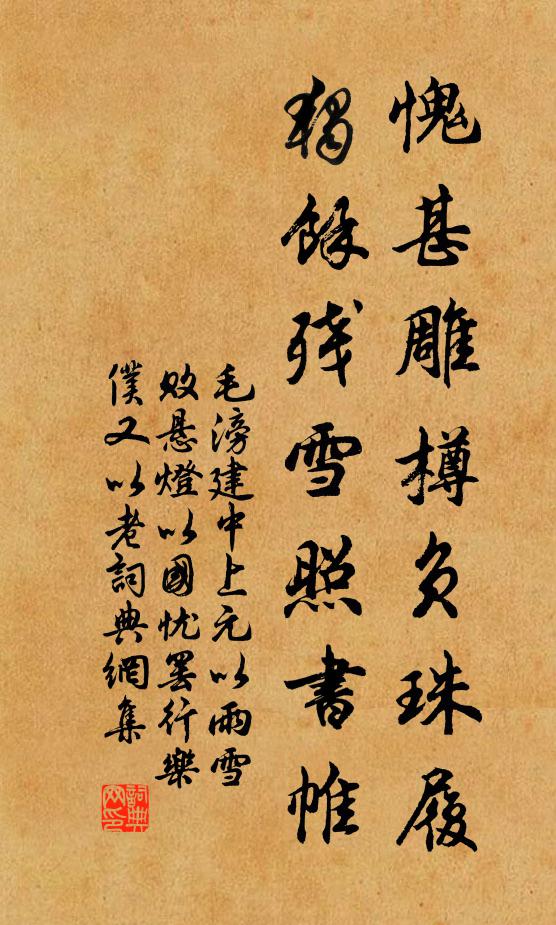 愧甚雕樽負珠履
獨餘殘雪照書帷
毛滂建中上元以雨雪
敗悬燈以國忧罢行樂
僕又以老詞典網集
詞典網印